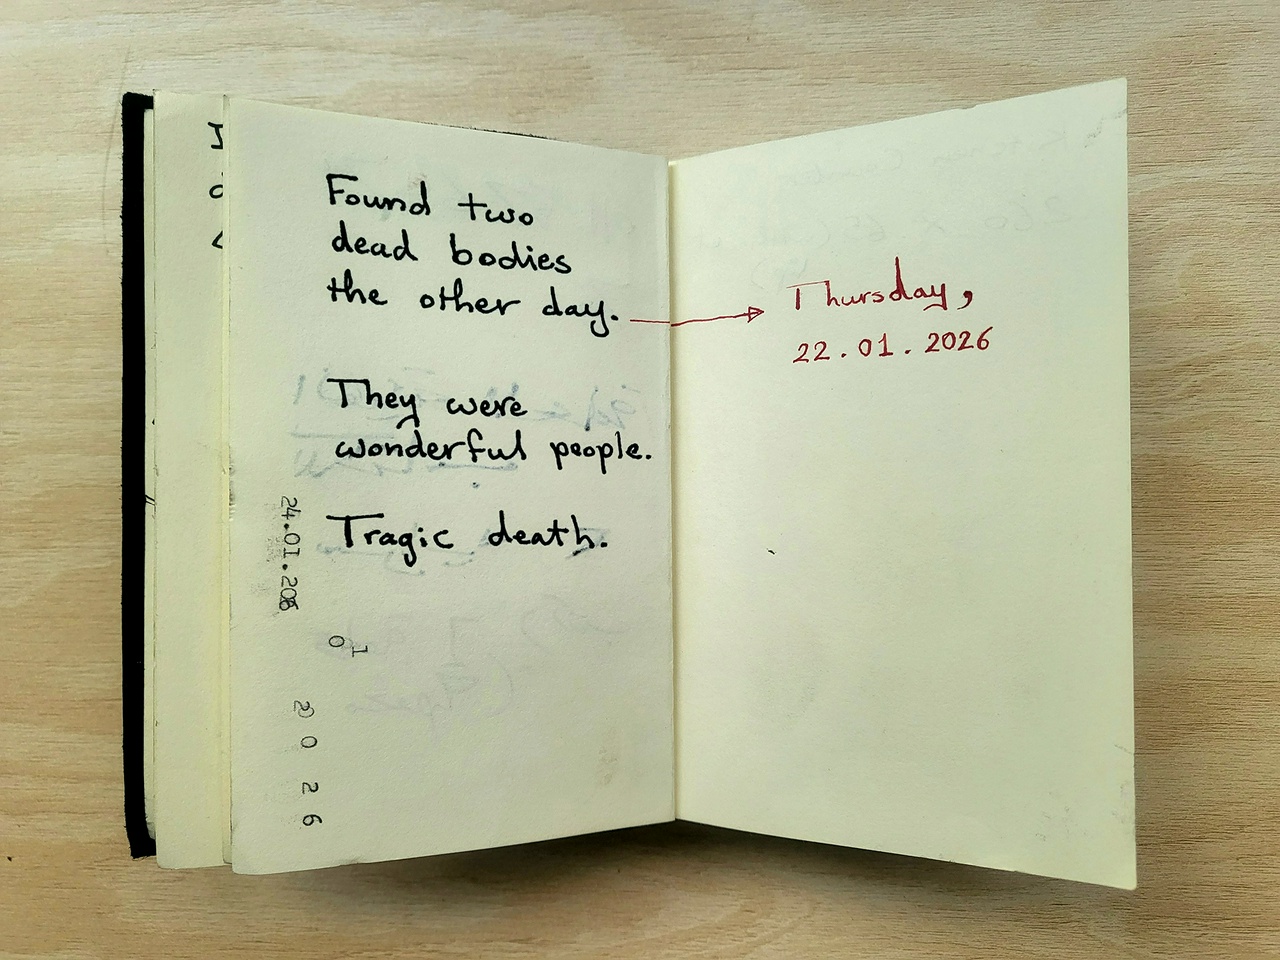 Found two
dead bodies
the other day.
They were
wonderful people.
Tragic death.
Thursday,
22.01.2026
24.01.206
01
2026